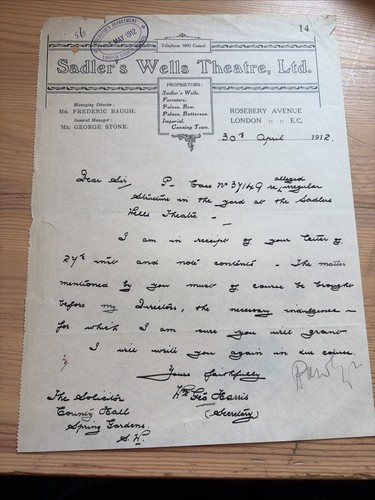 56
SOLICITOR'S DEPARTMENT
MAY. 1912
14
Telephone 1890 Central.
Sadler's Wells Theatre, Ltd.
Managing Director:
MR. FREDERIC BAUGH.
General Manager:
MR. GEORGE STONE.
PROPRIETORS:
Sadler's Wells.
Foresters.
Palace, Bow.
Palace, Battersea.
Imperial,
Canning Town.
ROSEBERY AVENUE
LONDON :: :: E.C.
30th April 1912.
Dear Sir P. Case No 37149 re, alleged irregular
Structure in the yard at the Sadlers
Wells Theatre -
I am in receipt of your letter of
27th inst and note contents - The matter
mentioned by you must of course be brought
before my Directors, the necessary indulgence -
for which I am sure you will grant
I will write you again in due course.
Yours faithfully
Wm Geo Harris
(Secretary)
The Solicitor
County Hall
Spring Gardens,
S.W.